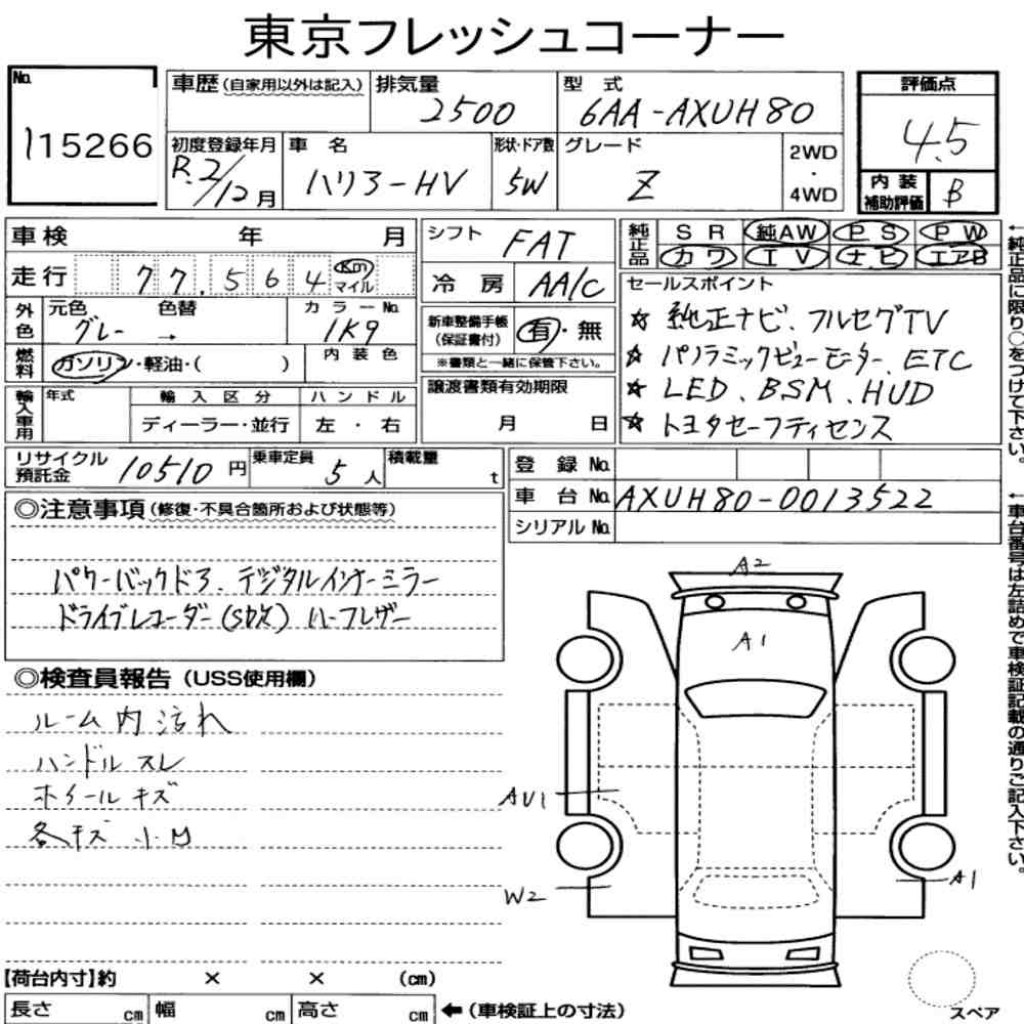 東京フレッシュコーナー
No. 115266
車歴 (自家用以外は記入)
排気量 2500
型式 6AA-AXUH80
評価点 4.5
初度登録年月 R.2/12月
車名 ハリアーHV
形状・ドア数 5W
グレード Z
2WD・4WD
内装補助評価 B
車検 年 月
走行 77.564 Km マイル
シフト FAT
冷房 AA/C
純正品 SR 純AW PS PW
カワ TV ナビ エアB
外色 元色 グレー → 色替
カラーNo. 1K9
燃料 ガソリン・軽油・( )
内装色
新車整備手帳(保証書付) 有・無
※書類と一緒に保管下さい。
セールスポイント
☆ 純正ナビ、フルセグTV
☆ パノラミックビューモニター、ETC
☆ LED、BSM、HUD
☆ トヨタセーフティセンス
輸入車用 年式 輸入区分 ハンドル
ディーラー・並行 左・右
譲渡書類有効期限 月 日
リサイクル預託金 10510円
乗車定員 5人
積載量 t
登録No.
車台No. AXUH80-0013522
シリアルNo.
◎注意事項(修復・不具合箇所および状態等)
パワーバックドア、デジタルインナーミラー
ドライブレコーダー(SD欠) ハーフレザー
◎検査員報告 (USS使用欄)
ルーム内汚れ
ハンドルスレ
ホイールキズ
各キズ 小凹
A2
A1
AU1
W2
A1
スペア
【荷台内寸】約 × × (cm)
長さ cm 幅 cm 高さ cm ←(車検証上の寸法)
←純正品に限り○をつけて下さい。
←車台番号は左詰めで車検証記載の通りご記入下さい。